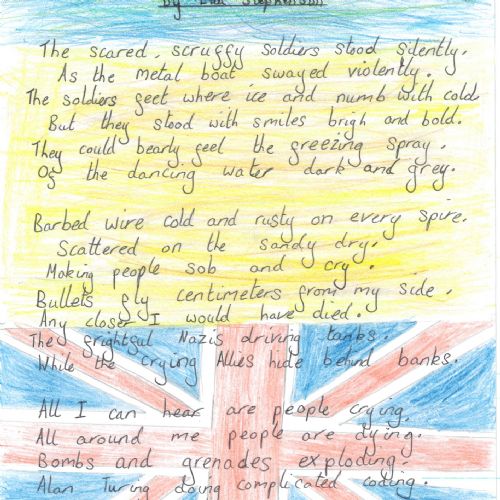 The scared, scruggy soldiers stood silently.
As the metal boat swayed violently.
The soldiers feet where ice and numb with cold.
But they stood with smiles brigh and bold.
They could bearly feel the freezing spray.
Of the dancing water dark and grey.
Barbed wire cold and rusty on every spire.
Scattered on the sandy dry.
Making people sob and cry.
Bullets fly centimeters from my side.
Any closer I would have died.
The frightful Nazis driving tanks.
While the crying Allies hide behind banks.
All I can hear are people crying.
All around me people are dying.
Bombs and grenades exploding.
Alan Turing doing complicated coding.